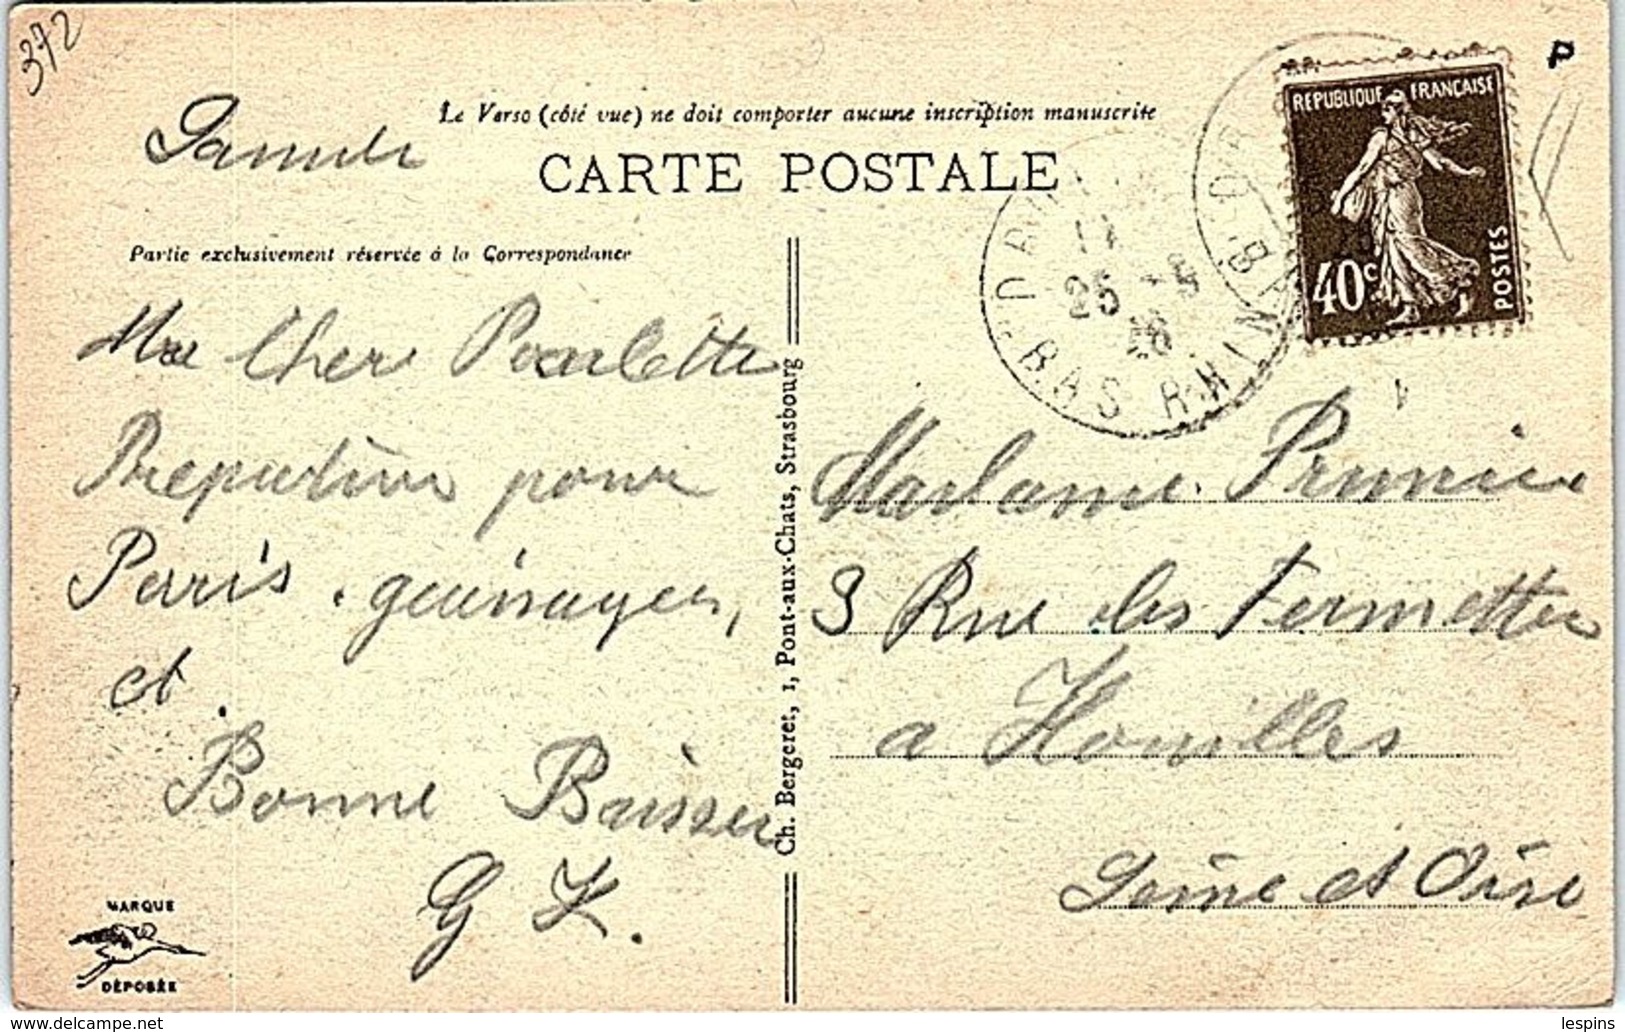 372
P
Le Verso (côté vue) ne doit comporter aucune inscription manuscrite
CARTE POSTALE
Partie exclusivement réservée à la Correspondance
REPUBLIQUE FRANÇAISE
40c
POSTES
25 -5
36
BAS RHIN
Ma Cher Paulette
pour
Paris
et
Bonne Baiser
G K.
MARQUE
DÉPOSÉE
Ch. Bergeret, 1, Pont-aux-Chats, Strasbourg
Madame Prunier
3 Rue des Fermettes
a Houilles
Seine et Oise
www.delcampe.net
lespins